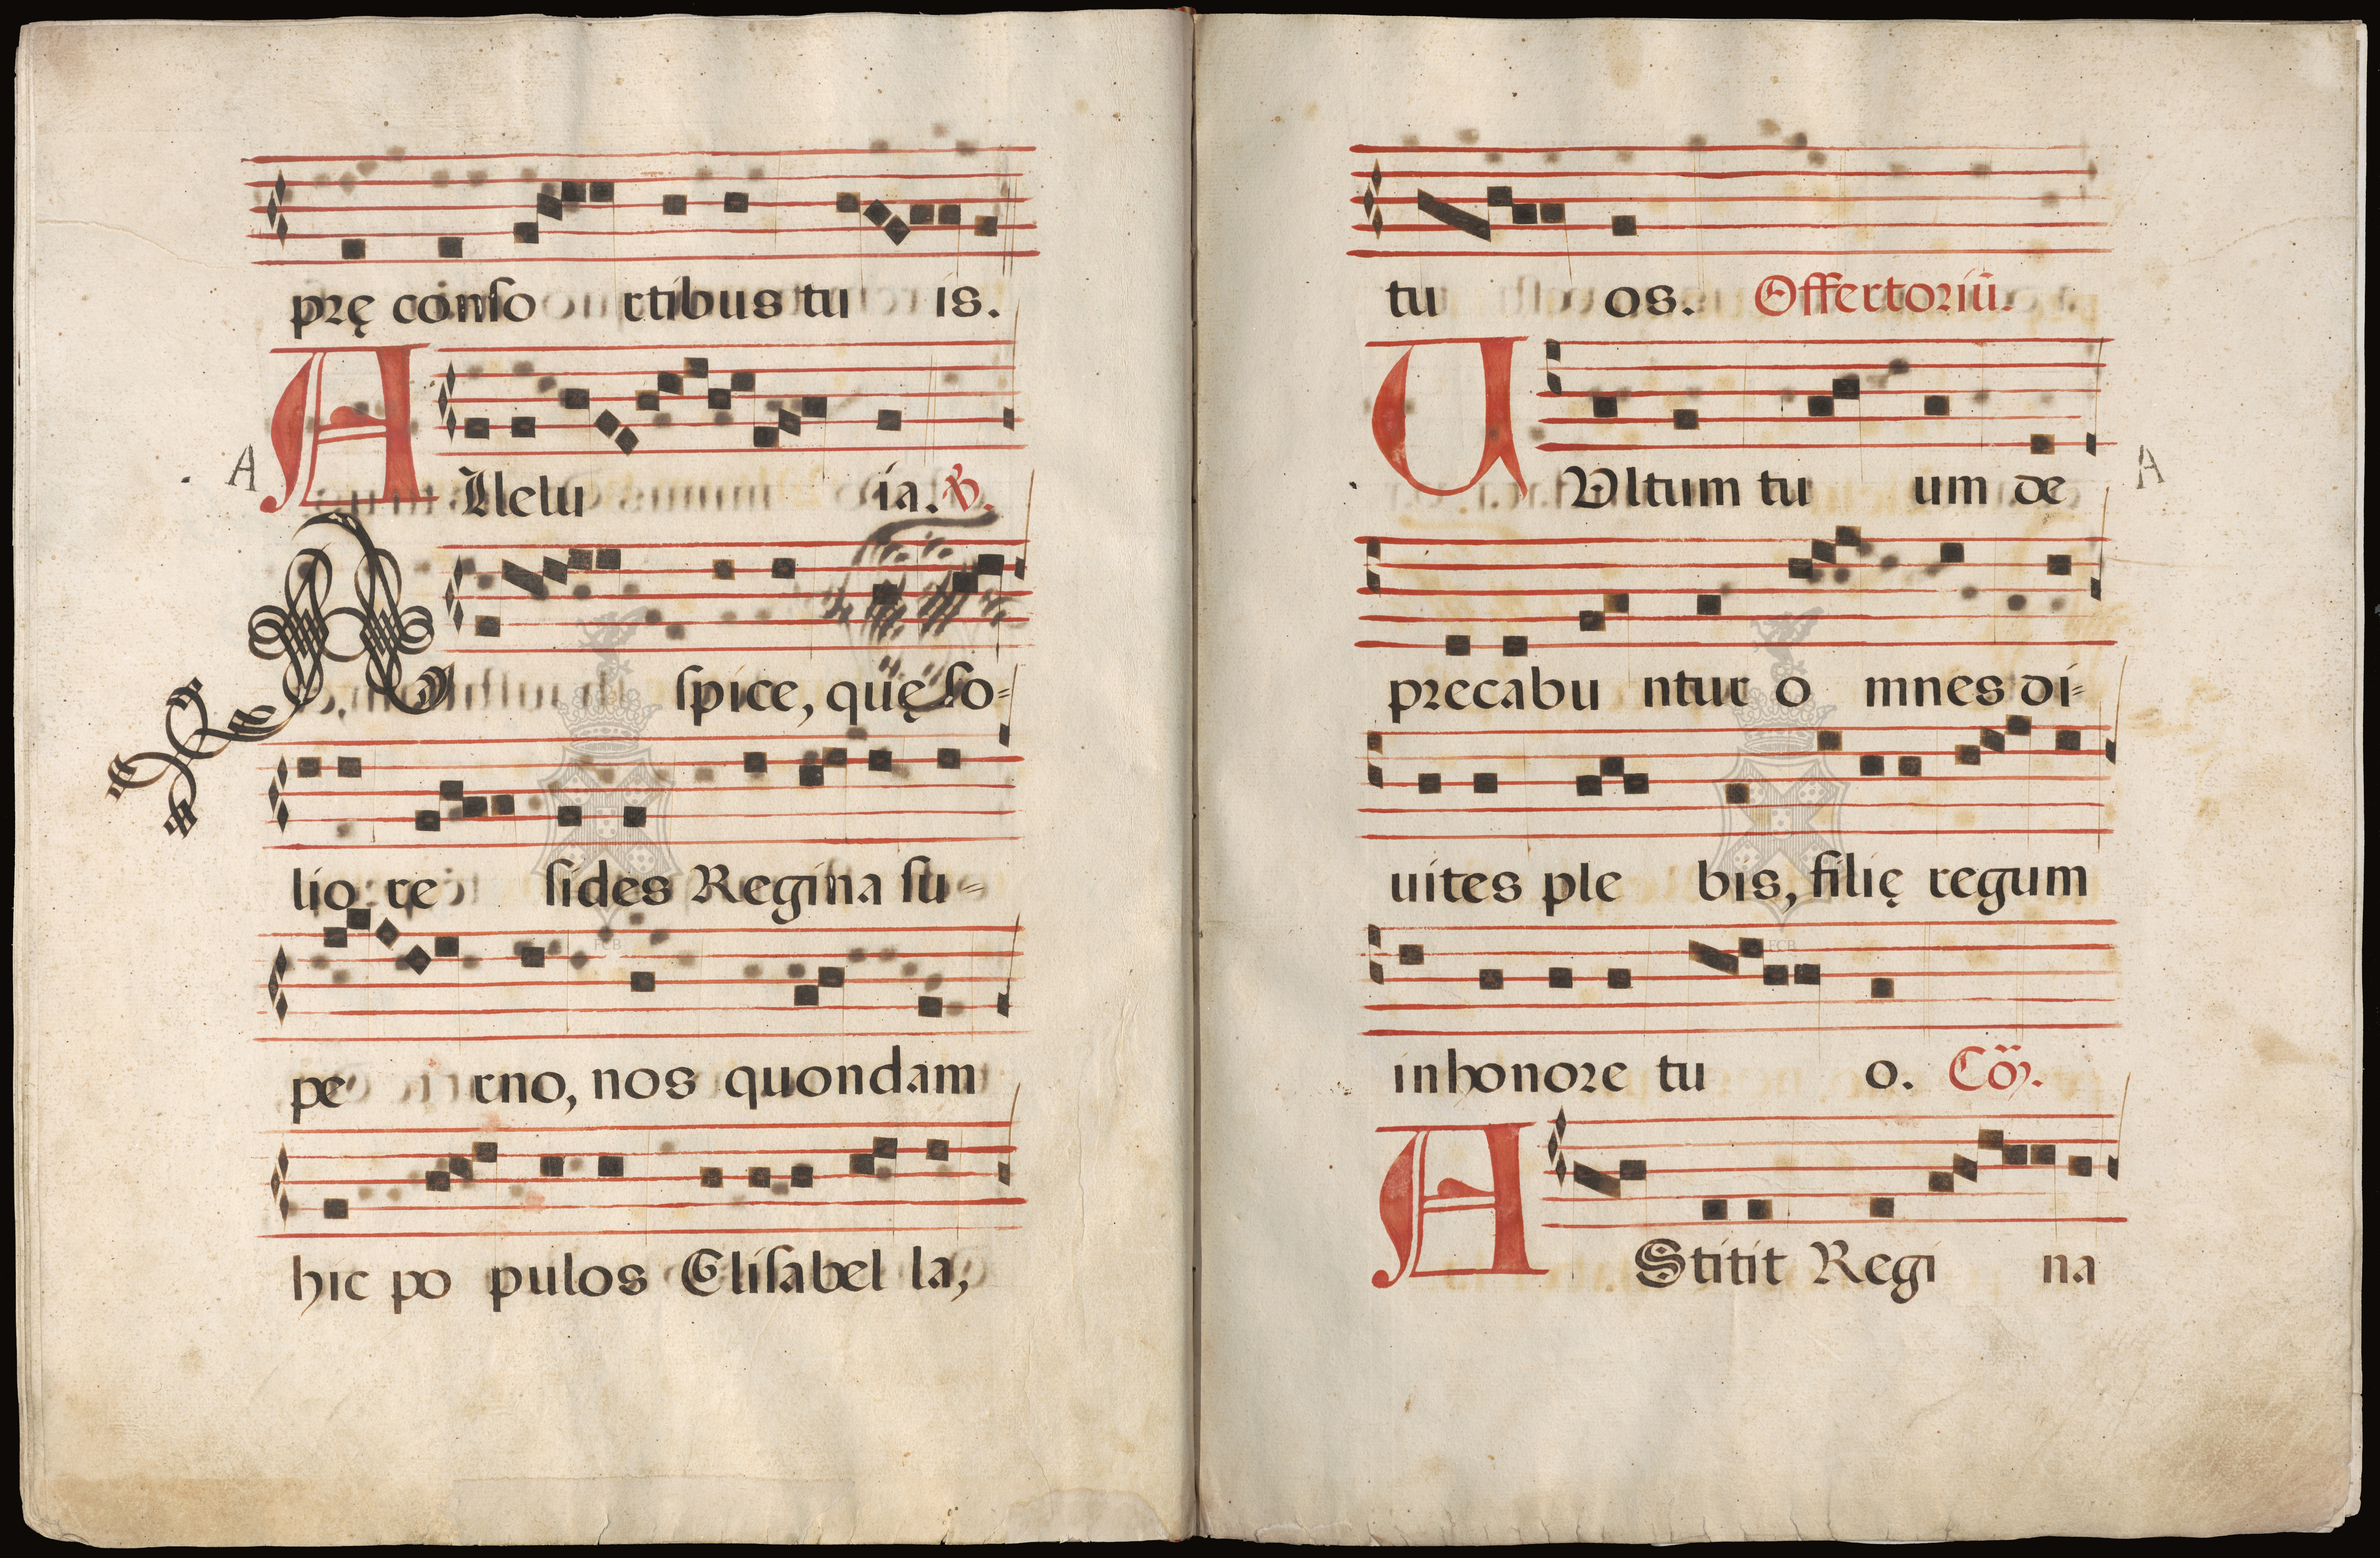 prę conso rtibus tu is.
A
A Llelu ia. ℟.
Aspice, quę so-
lio re sides Regina su-
pe rno, nos quondam
hic po pulos Elisabel la,
tu os. Offertoriũ.
U Ultum tu um de
A
precabu ntur o mnes di-
uites ple bis, filię regum
in honore tu o. Cõ.
A Stitit Regi na
FCB
FCB